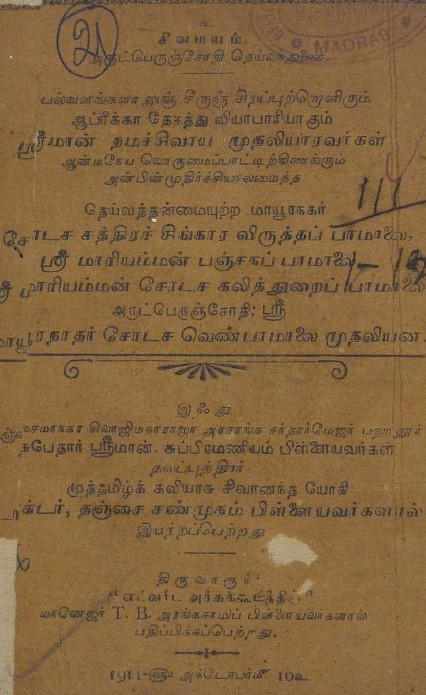 21
MADRAS
சிவமயம்.
அருட்பெருஞ்சோதி
சீருஞ் சிறப்புற்றொளிரும்
ஆப்ரிக்கா தேசத்து வியாபாரியாகும்
ஸ்ரீமான் நமச்சிவாய முதலியாரவர்கள்
ஆன்மநேய வொருமைப்பாட்டிற்கிணங்கும்
அன்பின்முதிர்ச்சியாலமைத்த
தெய்வத்தன்மையுற்ற மாயூரநகர்
சோடச சத்திரச் சிங்கார விருத்தப் பாமாலை,
ஸ்ரீ மாரியம்மன் பஞ்சகப் பாமாலை
ஸ்ரீ மாரியம்மன் சோடச கலித்துறைப் பாமாலை
அருட்பெருஞ்சோதி; ஸ்ரீ
மாயூரநாதர் சோடச வெண்பாமாலை முதலியன.
இஃது
சிவாஜிமகாராஜா அரசாங்க சர்தார்மேஜர் பஹதூர்
சுபேதார் ஸ்ரீமான். சுப்பிரமணியம் பிள்ளையவர்கள்
தவப்புத்திரர்
முத்தமிழ்க் கவியரசு சிவானந்த யோகி
டாக்டர், தஞ்சை சண்முகம் பிள்ளையவர்களால்
இயற்றப்பெற்றது
திருவாரூர்
எட்வர்ட் அச்சுக்கூடத்தில்
மானேஜர் T. B. அரங்கசாமிப் பிள்ளையவர்களால்
பதிப்பிக்கப்பெற்றது.
1911-௵ அக்டோபர்௴ 10௳